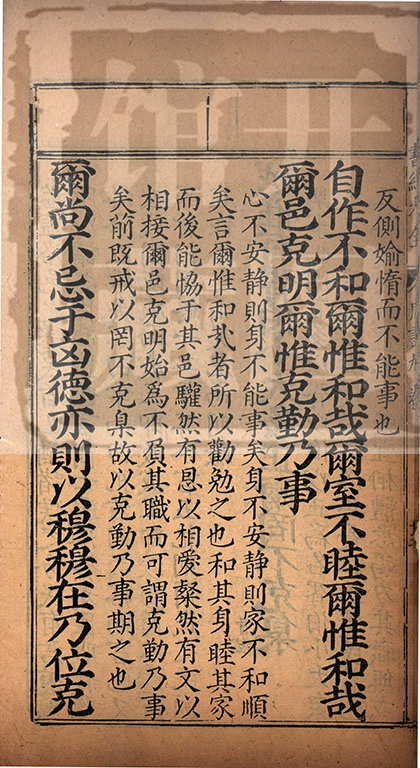 反側媮惰而不能事也
自作不和爾惟和哉爾室不睦爾惟和哉
爾邑克明爾惟克勤乃事
心不安静則身不能事矣身不安静則家不和順
矣言爾惟和㢤者所以勸勉之也和其身睦其家
而後能恊于其邑驩然有恩以相愛粲然有文以
相接爾邑克明始為不負其職而可謂克勤乃事
矣前既戒以罔不克臬故以克勤乃事期之也
爾尚不忌于凶德亦則以穆穆在乃位克